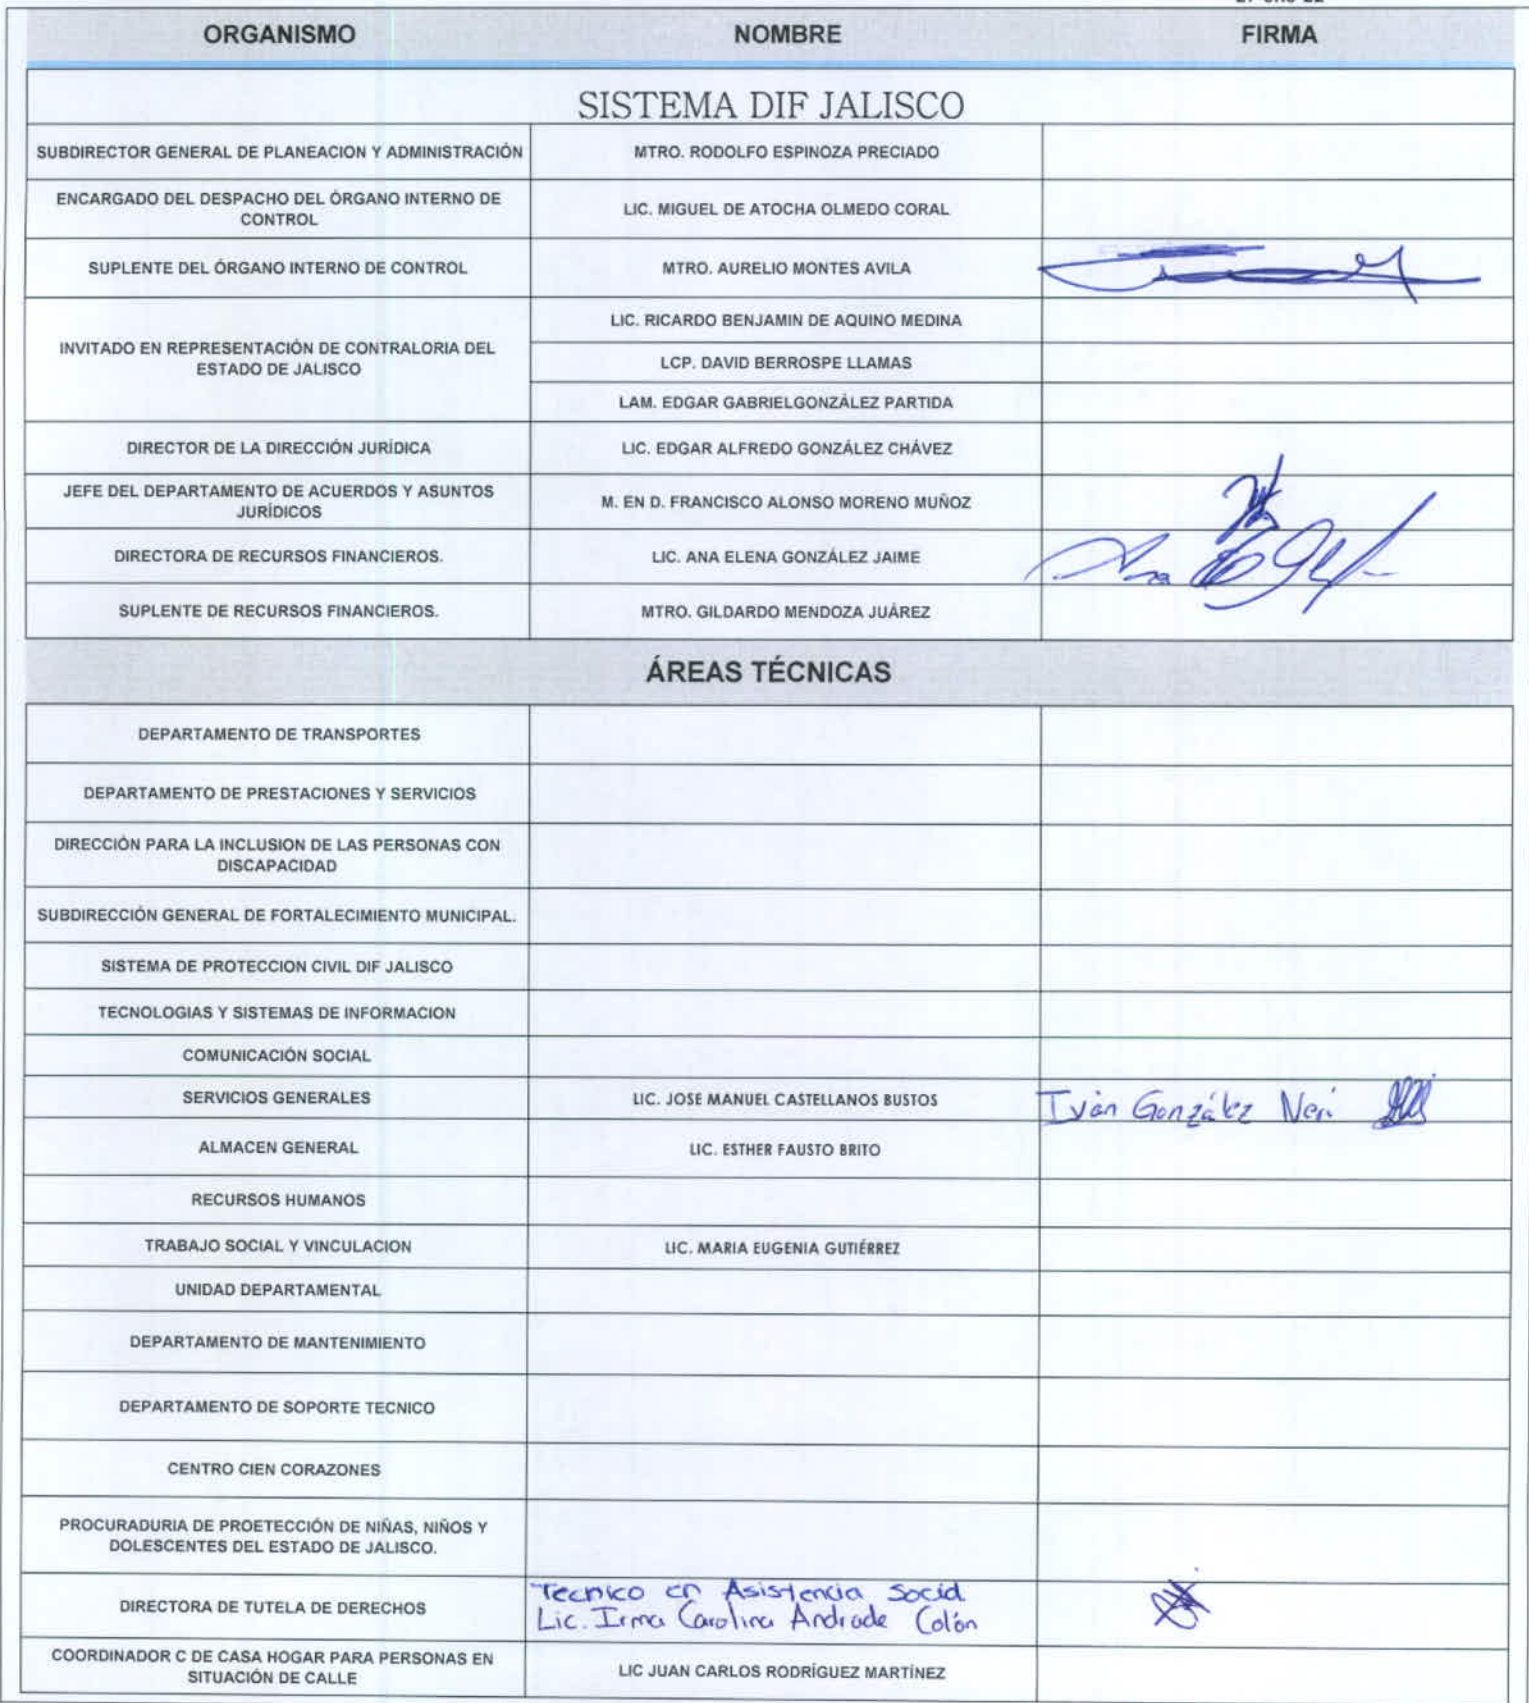 ORGANISMO NOMBRE FIRMA
SISTEMA DIF JALISCO
SUBDIRECTOR GENERAL DE PLANEACION Y ADMINISTRACIÓN MTRO. RODOLFO ESPINOZA PRECIADO
ENCARGADO DEL DESPACHO DEL ÓRGANO INTERNO DE
CONTROL
LIC. MIGUEL DE ATOCHA OLMEDO CORAL
SUPLENTE DEL ÓRGANO INTERNO DE CONTROL MTRO. AURELIO MONTES AVILA
INVITADO EN REPRESENTACIÓN DE CONTRALORIA DEL
ESTADO DE JALISCO
LIC. RICARDO BENJAMIN DE AQUINO MEDINA
LCP. DAVID BERROSPE LLAMAS
LAM. EDGAR GABRIELGONZÁLEZ PARTIDA
DIRECTOR DE LA DIRECCIÓN JURÍDICA LIC. EDGAR ALFREDO GONZÁLEZ CHÁVEZ
JEFE DEL DEPARTAMENTO DE ACUERDOS Y ASUNTOS
JURÍDICOS
M. EN D. FRANCISCO ALONSO MORENO MUÑOZ
DIRECTORA DE RECURSOS FINANCIEROS. LIC. ANA ELENA GONZÁLEZ JAIME
SUPLENTE DE RECURSOS FINANCIEROS. MTRO. GILDARDO MENDOZA JUÁREZ
ÁREAS TÉCNICAS
DEPARTAMENTO DE TRANSPORTES
DEPARTAMENTO DE PRESTACIONES Y SERVICIOS
DIRECCIÓN PARA LA INCLUSION DE LAS PERSONAS CON
DISCAPACIDAD
SUBDIRECCIÓN GENERAL DE FORTALECIMIENTO MUNICIPAL.
SISTEMA DE PROTECCION CIVIL DIF JALISCO
TECNOLOGIAS Y SISTEMAS DE INFORMACION
COMUNICACIÓN SOCIAL
SERVICIOS GENERALES LIC. JOSE MANUEL CASTELLANOS BUSTOS Iván González Neri
ALMACEN GENERAL LIC. ESTHER FAUSTO BRITO
RECURSOS HUMANOS
TRABAJO SOCIAL Y VINCULACION LIC. MARIA EUGENIA GUTIÉRREZ
UNIDAD DEPARTAMENTAL
DEPARTAMENTO DE MANTENIMIENTO
DEPARTAMENTO DE SOPORTE TECNICO
CENTRO CIEN CORAZONES
PROCURADURIA DE PROETECCIÓN DE NIÑAS, NIÑOS Y
DOLESCENTES DEL ESTADO DE JALISCO.
DIRECTORA DE TUTELA DE DERECHOS
Tecnico en Asistencia Social
Lic. Irma Carolina Andrade Colón
COORDINADOR C DE CASA HOGAR PARA PERSONAS EN
SITUACIÓN DE CALLE
LIC JUAN CARLOS RODRÍGUEZ MARTÍNEZ